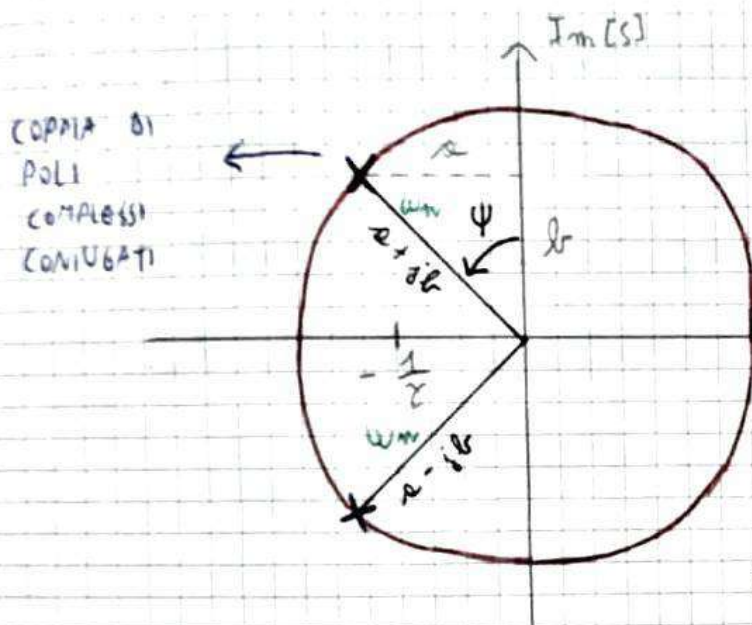 Im[s]
COPPIA DI
POLI
COMPLESSI
CONIUGATI
a
ωn
ψ
b
a + jb
- 1/τ
ωn
a - jb